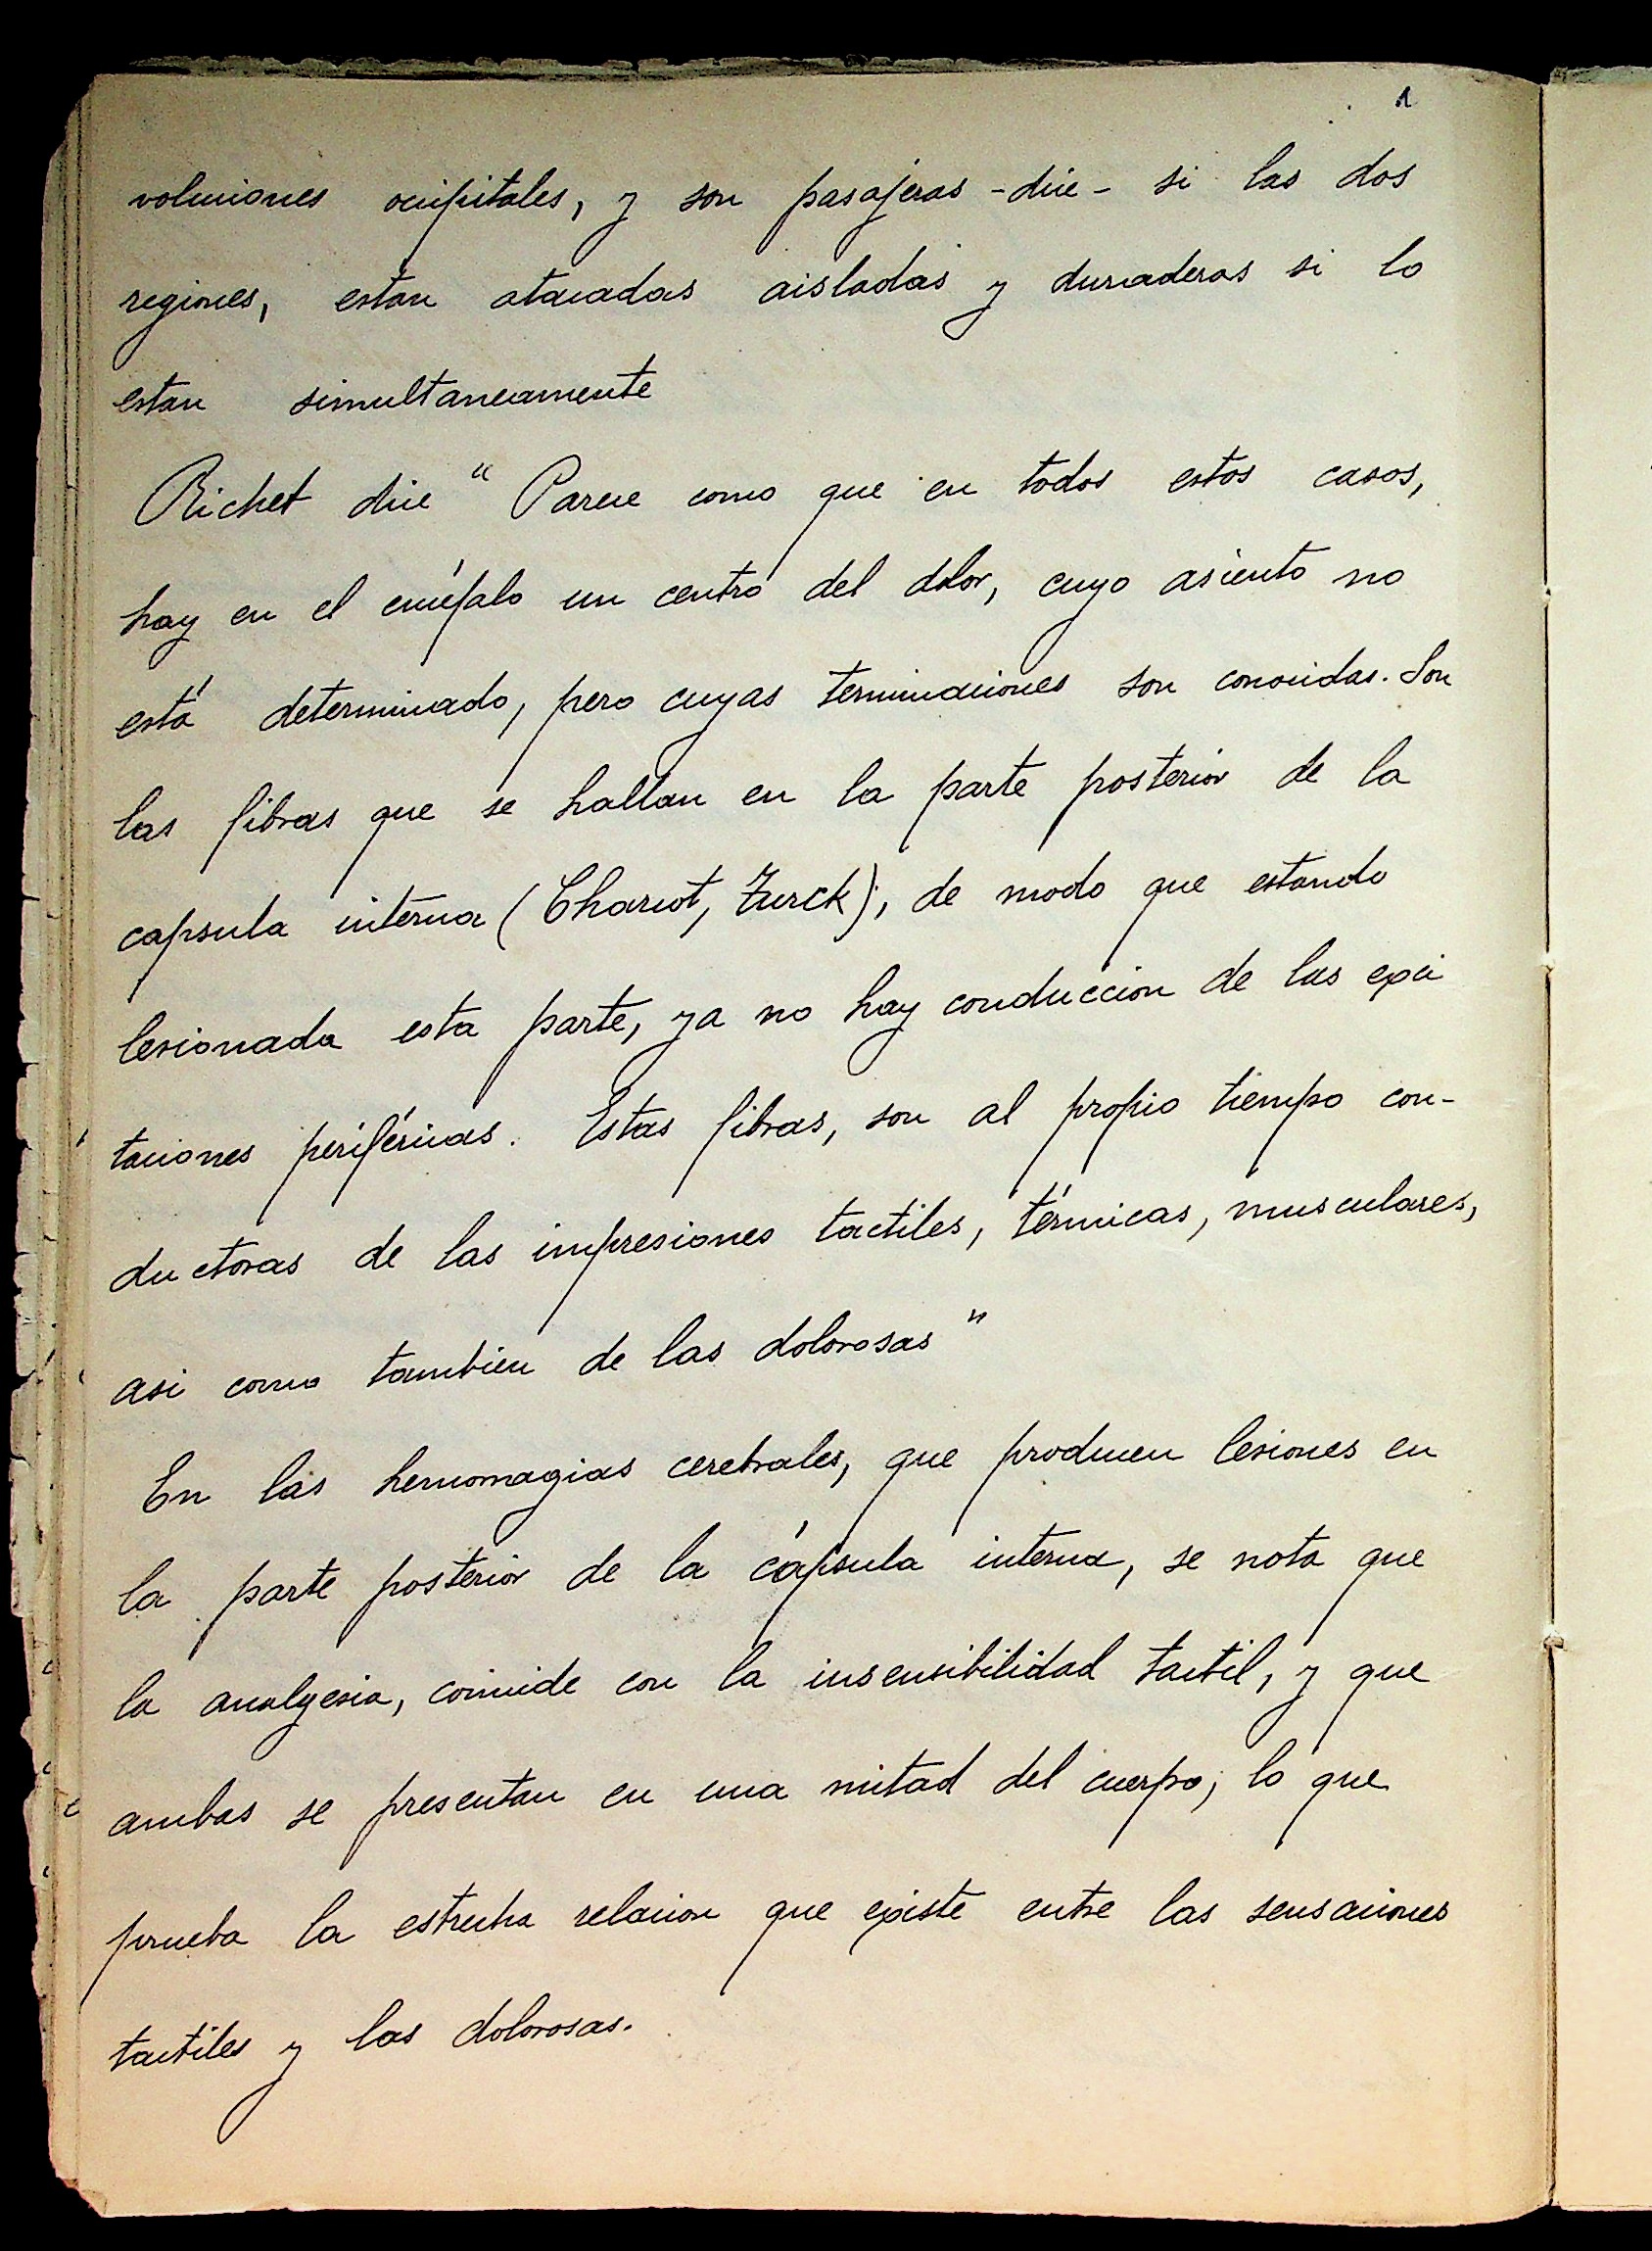 1
voluciones occipitales, y son pasajeras - dice - si las dos
regiones, estan atacadas aisladas y duraderas si lo
estan simultaneamente
Richet dice " Parece como que en todos estos casos,
hay en el encéfalo un centro del dolor, cuyo asiento no
está determinado, pero cuyas terminaciones son conocidas. Son
las fibras que se hallan en la parte posterior de la
capsula interna (Charcot, Turck), de modo que estando
lesionada esta parte, ya no hay conduccion de las exci
taciones periféricas. Estas fibras, son al propio tiempo con-
ductoras de las impresiones tactiles, térmicas, musculares,
asi como tambien de las dolorosas "
En las hemorragias cerebrales, que producen lesiones en
la parte posterior de la cápsula interna, se nota que
la analgesia, coincide con la insensibilidad tactil, y que
ambas se presentan en una mitad del cuerpo; lo que
prueba la estrecha relacion que existe entre las sensaciones
tactiles y las dolorosas.